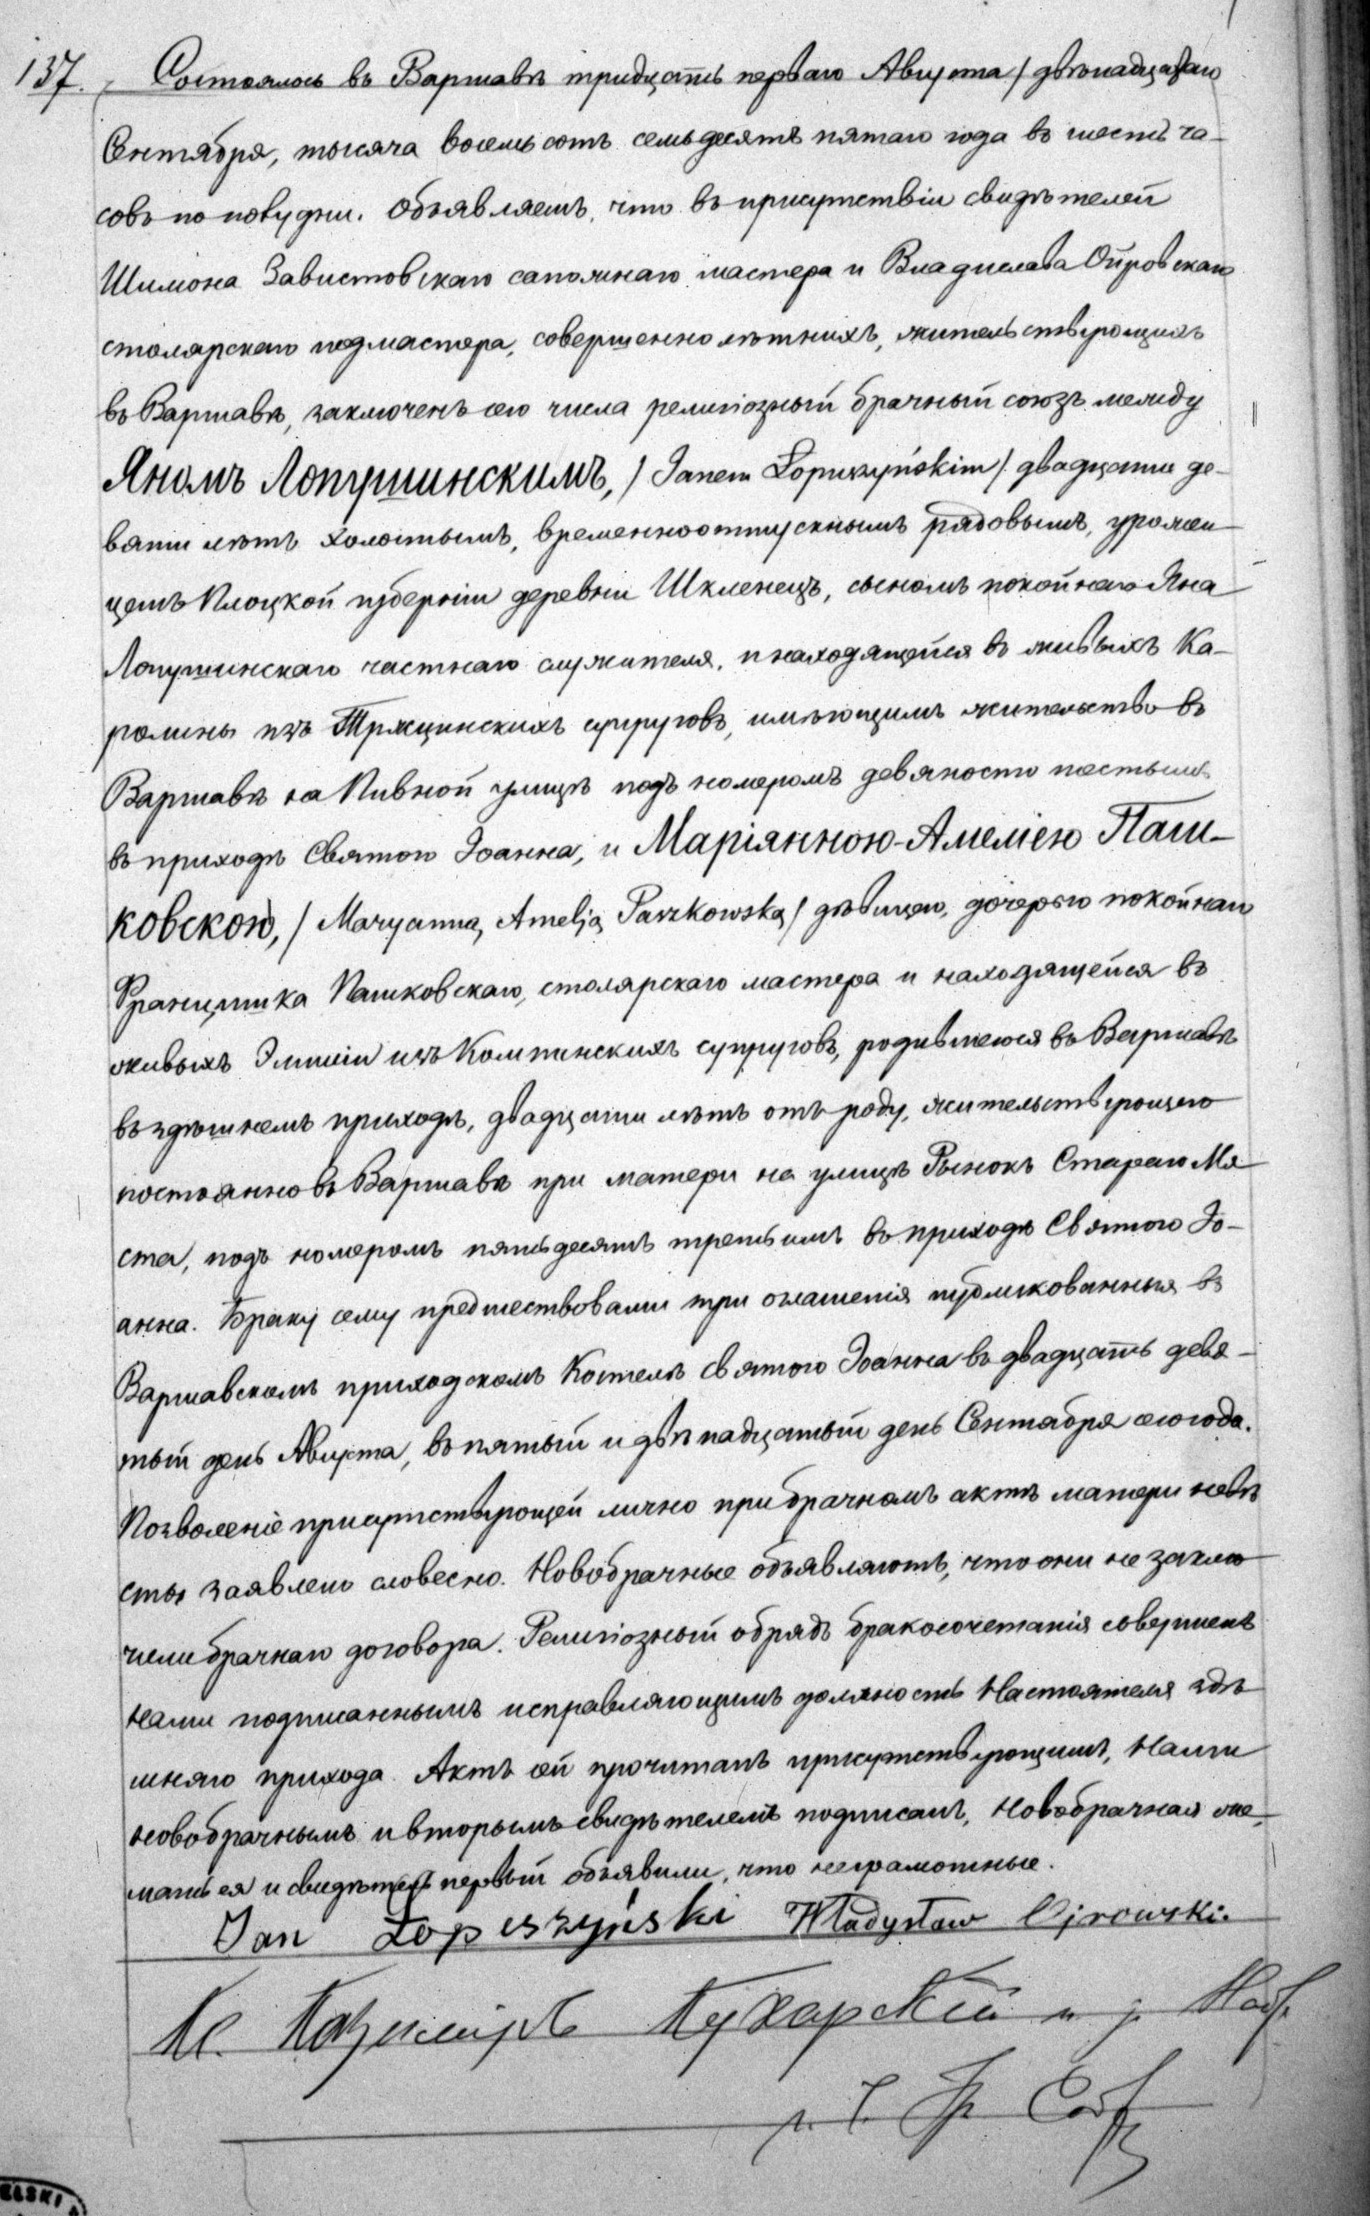 137. Состоялось въ Варшавѣ тридцать перваго Августа / двѣнадцатаго
Сентября, тысяча восемьсотъ семьдесятъ пятаго года въ шесть ча-
совъ по полудни. Объявляемъ, что въ присутствіи свидѣтелей
Шимона Завистовскаго сапожнаго мастера и Владислава Ойровскаго
столярскаго подмастера, совершеннолѣтнихъ, жительствующихъ
въ Варшавѣ, заключенъ сего числа религіозный брачный союзъ между
Яномъ Лопушинскимъ, / Janem Łopuszyńskim / двадцати де-
вяти лѣтъ холостымъ, временноотпускнымъ рядовымъ, урожен-
цемъ Плоцкой губерніи деревни Шкленецъ, сыномъ покойнаго Яна
Лопушинскаго частнаго служителя, и находящейся въ живыхъ Ка-
ролины изъ Тржцинскихъ супруговъ, имѣющимъ жительство въ
Варшавѣ на Пивной улицѣ подъ номеромъ девяносто шестымъ
въ приходѣ Святого Іоанна, и Маріянною-Амеліею Паш-
ковскою, / Maryanną Amelją Paszkowską / дѣвицею, дочерью покойнаго
Францишка Пашковскаго, столярскаго мастера и находящейся въ
живыхъ Эмиліи изъ Компинскихъ супруговъ, родившеюся въ Варшавѣ
въ здѣшнемъ приходѣ, двадцати лѣтъ отъ роду, жительствующею
постоянно въ Варшавѣ при матери на улицѣ Рынокъ Стараго Мя-
ста, подъ номеромъ пятьдесятъ третьимъ въ приходѣ Святого Іо-
анна. Браку сему предшествовали три оглашенія публикованныя въ
Варшавскомъ приходскомъ Костелѣ Святого Іоанна въ двадцать девя-
тый день Августа, въ пятый и двѣнадцатый день Сентября сего года.
Позволеніе присутствующей лично при брачномъ актѣ матери невѣ-
сты заявлено словесно. Новобрачные объявляютъ, что они не заклю-
чили брачнаго договора. Религіозный обрядъ бракосочетанія совершенъ
нами подписаннымъ исправляющимъ должность Настоятеля здѣ-
шняго прихода. Актъ сей прочитанъ присутствующимъ, Нами
новобрачнымъ и вторымъ свидѣтелемъ подписанъ, Новобрачная же,
мать ея и свидѣтель первый объявили, что неграмотные.
Jan Łopuszyński Władysław Ojrowski.
Кс. Казиміръ Пухарскій и. д. Наст.